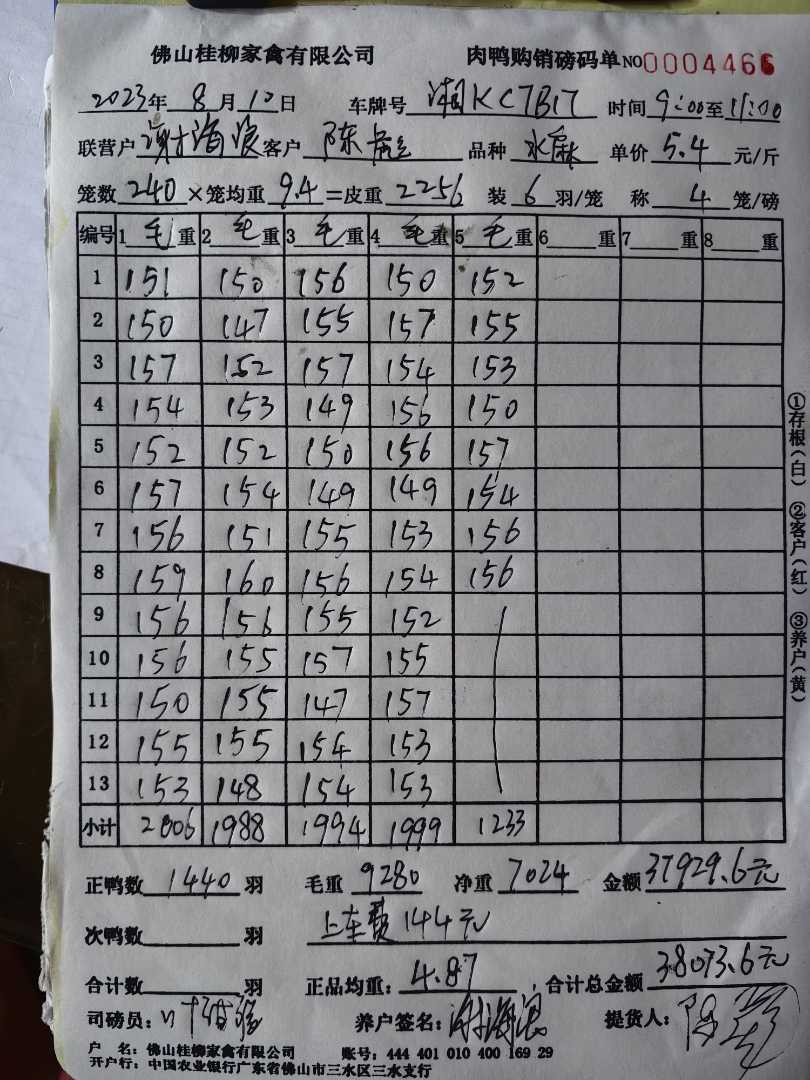 佛山桂柳家禽有限公司 肉鸭购销磅码单 NO 0004466
2023年 8月 10日 车牌号 湘KC7B17 时间 9:00至 11:00
联营户 谢海浪 客户 陈 品种 水麻 单价 5.4 元/斤
笼数 240 ×笼均重 9.4 =皮重 2256 装 6 羽/笼 称 4 笼/磅
编号 1 毛 重 2 毛 重 3 毛 重 4 毛 重 5 毛 重 6 重 7 重 8 重
1 151 150 156 150 152
2 150 147 155 157 155
3 157 152 157 154 153
4 154 153 149 156 150
5 152 152 150 156 157
6 157 154 149 149 154
7 156 151 155 153 156
8 159 160 156 154 156
9 156 156 155 152
10 156 155 157 155
11 150 155 147 157
12 155 155 154 153
13 153 148 154 153
小计 2006 1988 1994 1999 1233
正鸭数 1440 羽 毛重 9280 净重 7024 金额 37929.6元
次鸭数 羽 上车费 144元
合计数 羽 正品均重: 4.87 , 合计总金额 38073.6元
司磅员: 养户签名: 谢海浪 提货人: 陈
户 名: 佛山桂柳家禽有限公司 账号: 444 401 010 400 169 29
开户行: 中国农业银行广东省佛山市三水区三水支行
①存根(白) ②客户(红) ③养户(黄)